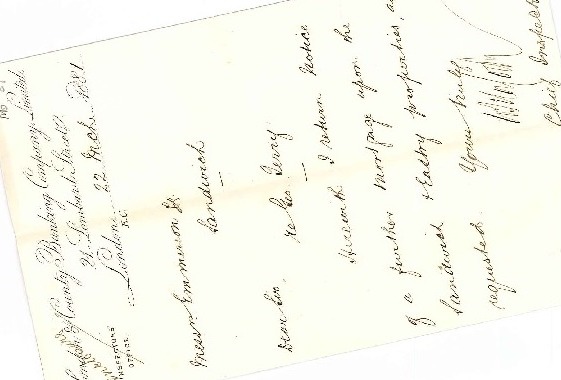 London & County Banking Company, Limited.
21, Lombard Street,
London 22 Mch 1881
E.C.
INSPECTORS
OFFICE.
Messrs Emmerson &
Sandwich
Dear Sirs,
re Geo. Terry
Herewith I return Notice
of a further Mortgage upon the
Sandwich & Eastry properties, as
requested.
Yours truly
Chief Inspector